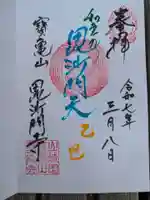 奉拝
令和七年
三月八日
毘沙門天
乙巳
寳亀山
毘沙門寺